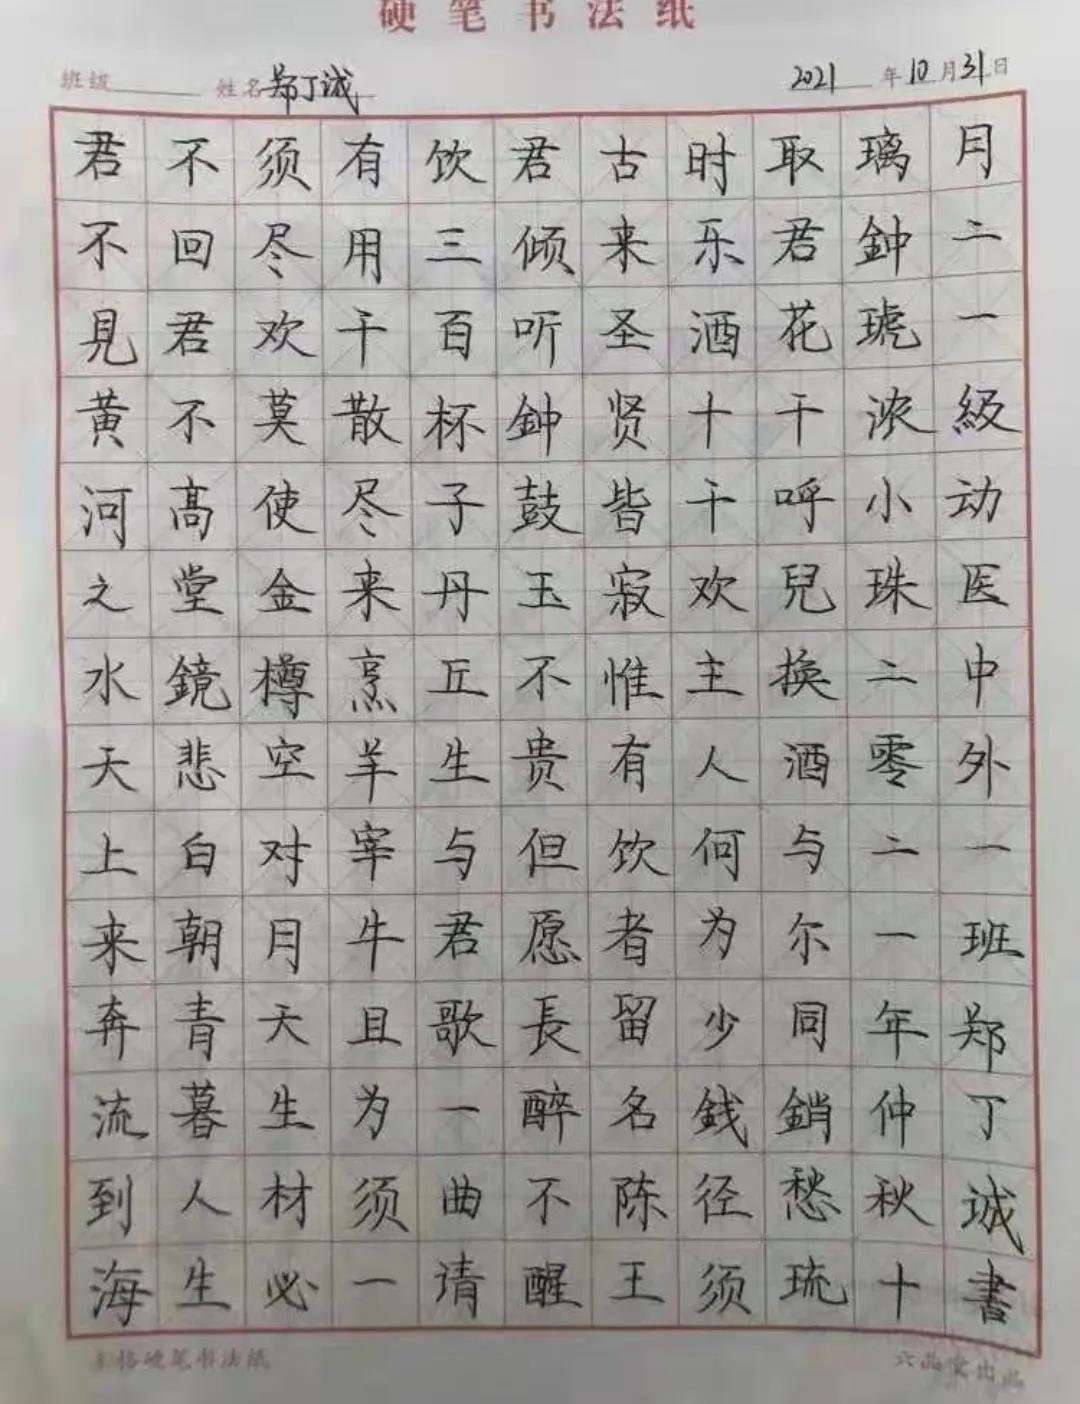 硬笔书法纸
班级 姓名 郑丁诚 2021年10月31日
君不見黄河之水天上来奔流到海
不回君不高堂鏡悲白朝青暮人生
须尽欢莫使金樽空对月天生材必
有用千散尽来烹羊宰牛且为须一
饮三百杯子丹丘生与君歌一曲请
君倾听鈡鼓玉不贵但愿長醉不醒
古来圣贤皆寂惟有饮者留名陈王
时乐酒十千欢主人何为少錢径须
取君花千呼兒换酒与尔同銷愁琉
璃鈡琥浓小珠二零二一年仲秋十
月二一級动医中外一班郑丁诚書
米格硬笔书法纸 六品堂出品